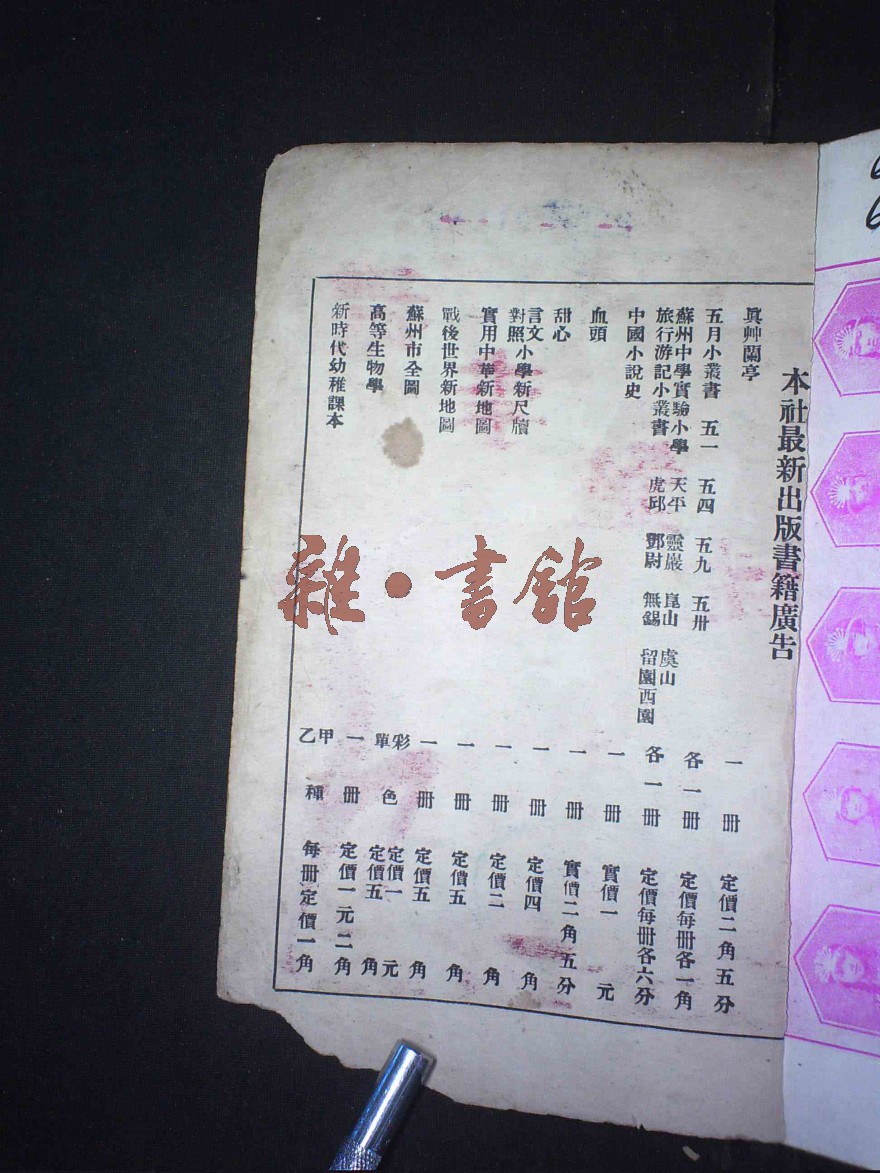 本社最新出版書籍廣告
眞艸蘭亭 一册 定價二角五分
五月小叢書 五一 五四 五九 五卅 各一册 定價每册各一角
蘇州中學實驗小學 天平 靈巖 崑山 虞山
旅行游記小叢書 虎邱 鄧尉 無錫 留園西園 各一册 定價每册各六分
中國小說史 一册 實價一元
血頭 一册 實價二角五分
甜心 一册 定價四角
言文對照小學新尺牘 一册 定價二角
實用中華新地圖 一册 定價五角
戰後世界新地圖 一册 定價五角
蘇州市全圖 彩單色 定價一元 定價五角
高等生物學 一册 定價一元二角
新時代幼稚課本 甲乙種 每册定價一角
雜·書館